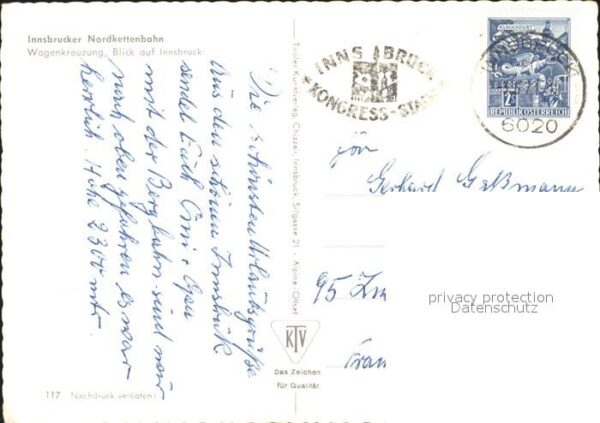 Innsbrucker Nordkettenbahn
Wagenkreuzung, Blick auf Innsbruck
Die schönsten Urlaubsgrüße
aus dem schönen Innsbruck
sendet Euch Omi + Opa
mit der Bergbahn sind wir
nach oben gefahren es war
herrlich. Höhe 2300 mtr.
117 Nachdruck verboten!
Tiroler Kunstverlag Chizzali, Innsbruck, Sillgasse 21 - Alpine-Offset
KTV
Das Zeichen
für Qualität
INNSBRUCK
KONGRESS-STADT
KLAGENFURT
2S
REPUBLIK ÖSTERREICH
INNSBRUCK
6020
Gerhard Geßmann
95
privacy protection
Datenschutz
Frau